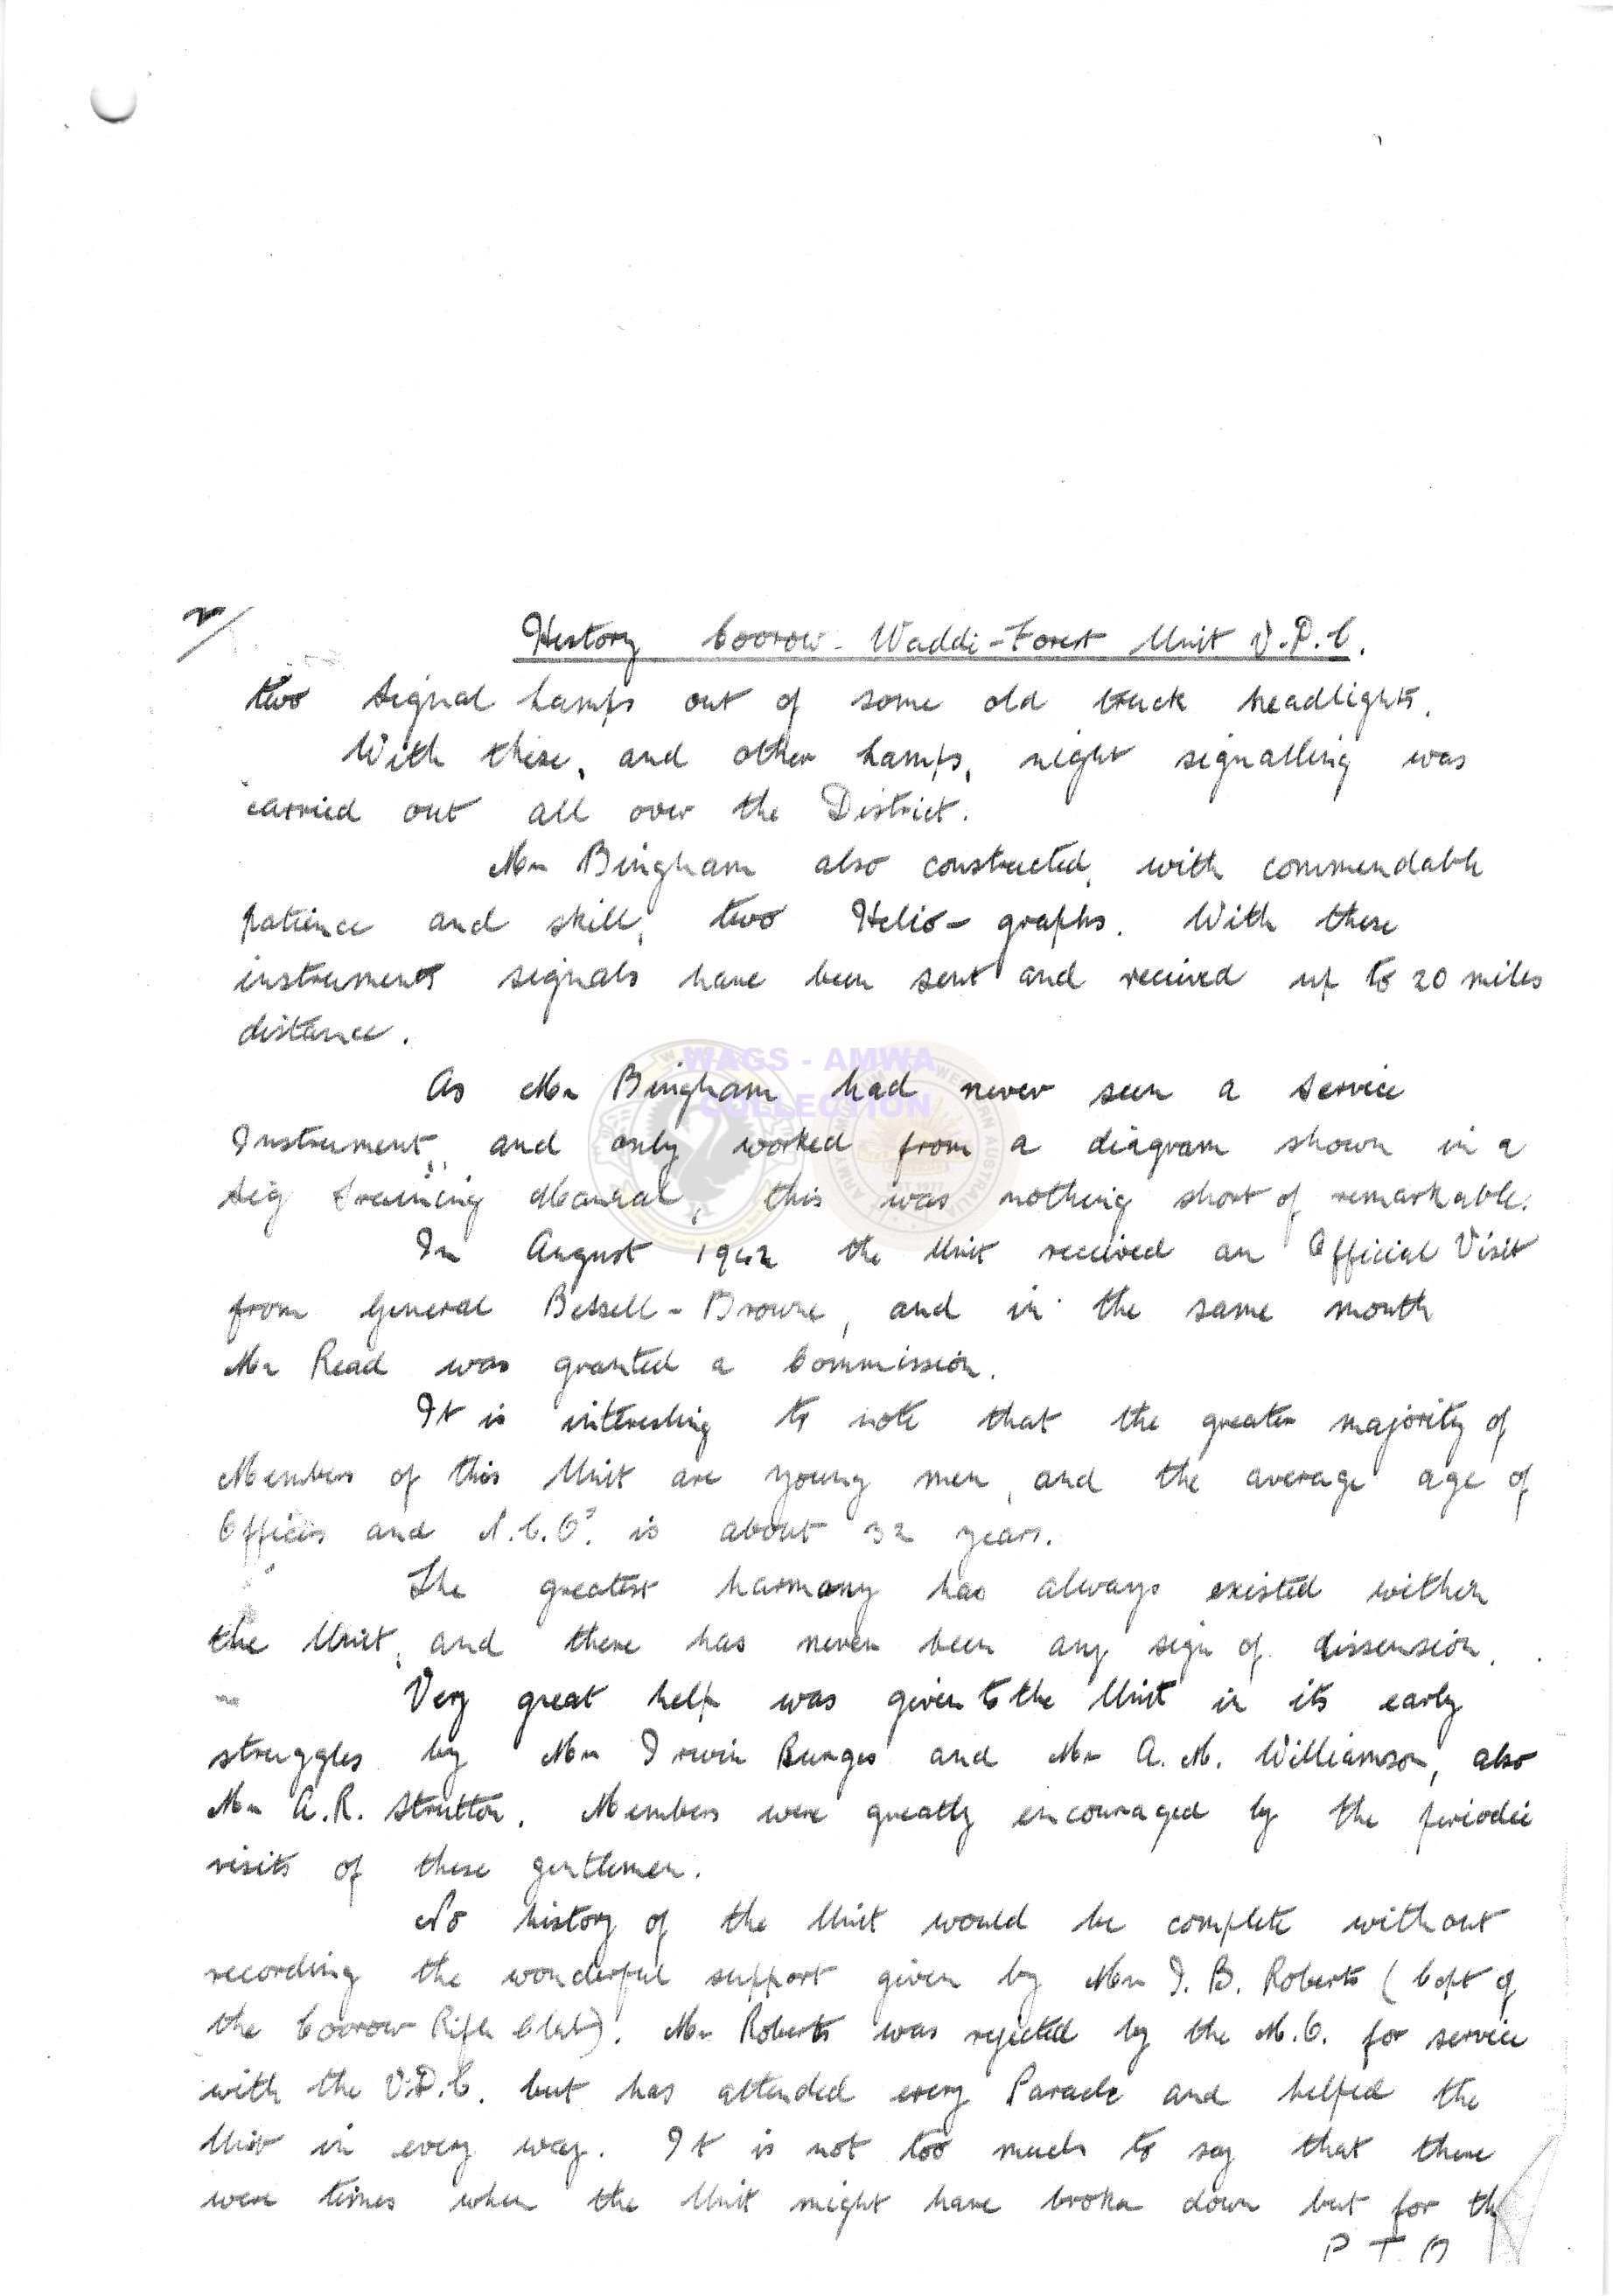 2/
History Coorow - Waddi-Forest Unit V.D.C.
two Signal Lamps out of some old truck headlights.
With these, and other Lamps, night signalling was
carried out all over the District.
Mr Bingham also constructed, with commendable
patience and skill, two Helio-graphs. With these
instruments signals have been sent and received up to 20 miles
distance.
WAGS - AMWA
COLLECTION
As Mr Bingham had never seen a Service
Instrument, and only worked from a diagram shown in a
Sig Training Manual, this was nothing short of remarkable.
In August 1942 the Unit received an Official Visit
from General Bessell-Browne, and in the same month
Mr Read was granted a Commission.
It is interesting to note that the greater majority of
Members of this Unit are young men, and the average age of
Officers and N.C.Os. is about 32 years.
The greatest harmony has always existed within
the Unit, and there has never been any sign of dissension.
Very great help was given to the Unit in its early
struggles by Mr Irwin Burges and Mr A. M. Williamson, also
Mr A.R. Strutton. Members were greatly encouraged by the periodic
visits of these gentlemen.
No history of the Unit would be complete without
recording the wonderful support given by Mr I. B. Roberts (Capt of
the Coorow Rifle Club). Mr Roberts was rejected by the M.O. for service
with the V.D.C. but has attended every Parade and helped the
Unit in every way. It is not too much to say that there
were times when the Unit might have broken down but for the
P T O